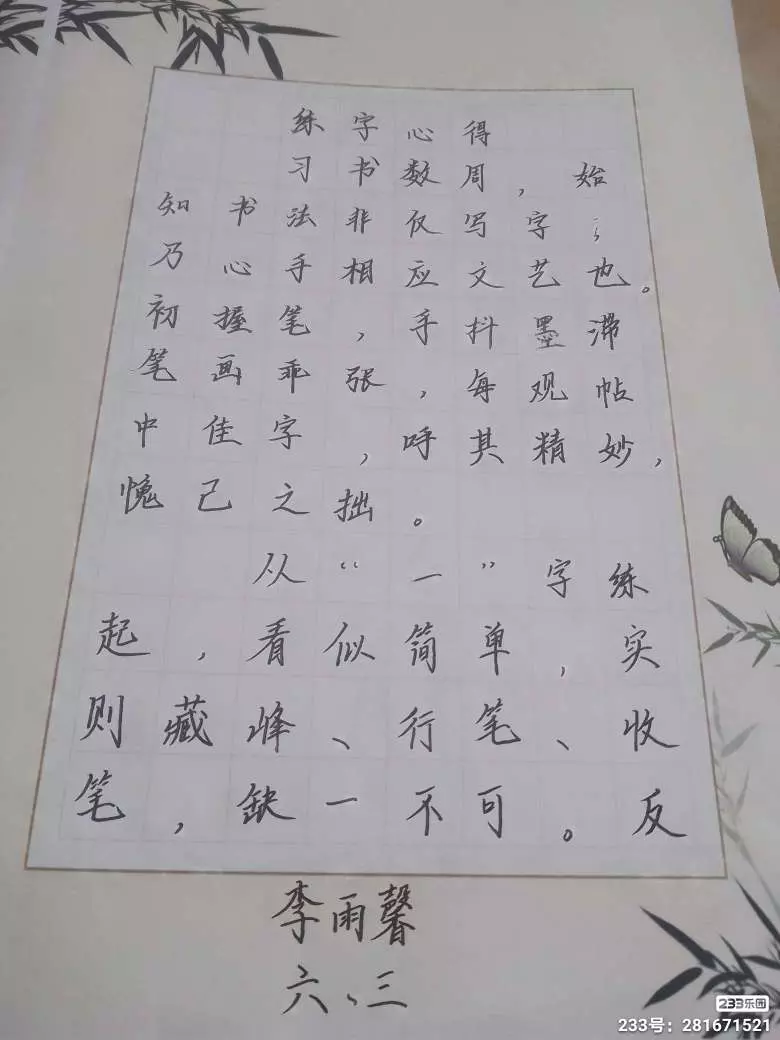 练字心得
习书数周，始
知书法非仅写字；
乃心手相应文艺也。
初握笔，手抖墨滞
笔画乖张，每观帖
中佳字，呼其精妙，
愧己之拙。
从“一”字练
起，看似简单，实
则藏峰、行笔、收
笔，缺一不可。反
李雨馨
六、三
233乐园
233号：281671521